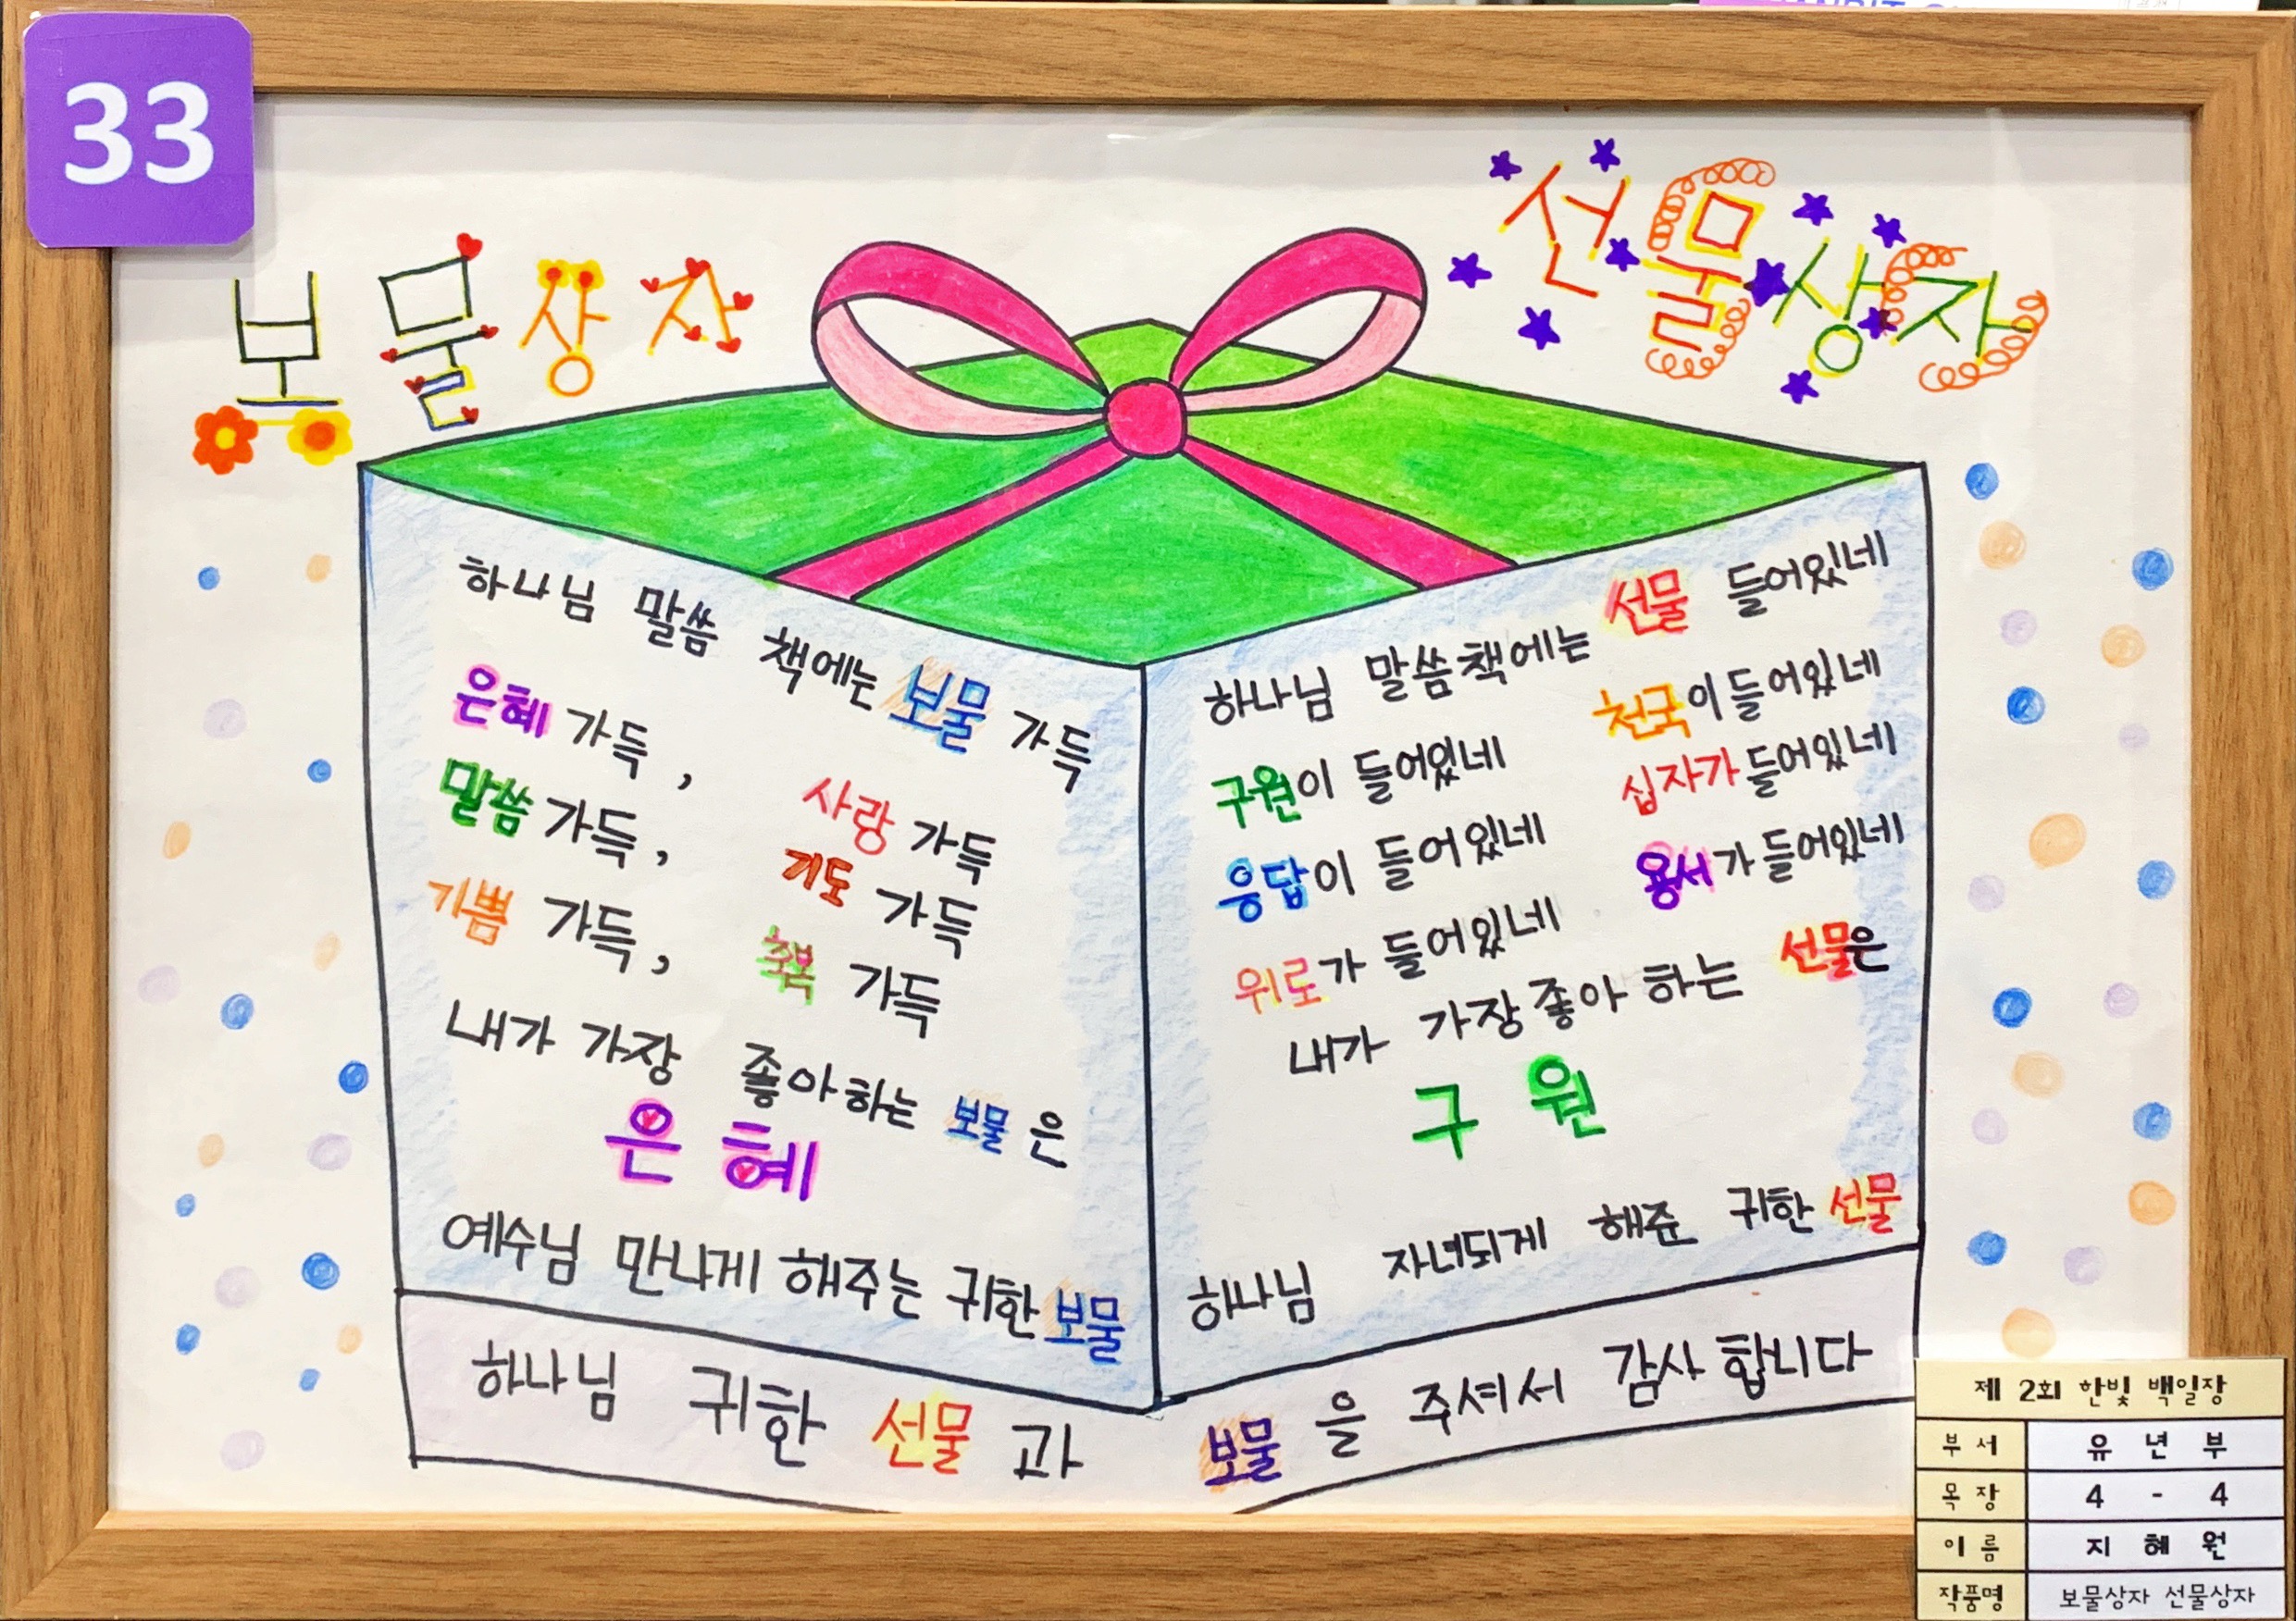 33
보물상자
선물상자
하나님 말씀 책에는 보물 가득
은혜 가득, 사랑 가득
말씀 가득, 기도 가득
기쁨 가득, 가득
내가 가장 좋아하는 보물은
은혜
예수님 만나게 해주는 귀한 보물
하나님 말씀책에는 선물 들어있네
구원이 들어있네 천국이 들어있네
응답이 들어있네 십자가 들어있네
위로가 들어있네 용서가 들어있네
내가 가장 좋아 하는 선물은
구원
하나님 자녀되게 해준 귀한 선물
하나님 귀한 선물과 보물을 주셔서 감사합니다
제 2회 한빛 백일장
부서 유년부
목장 4 - 4
이름 지혜원
작품명 보물상자 선물상자